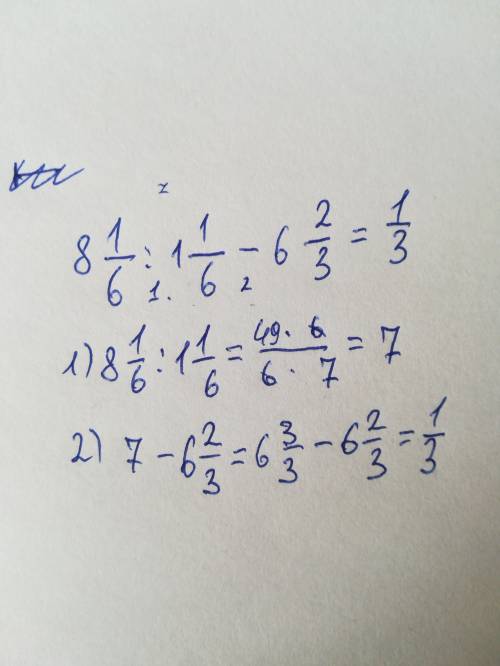 8 1/6 : 1 1/6 - 6 2/3 = 1/3
1. 2
1) 8 1/6 : 1 1/6 = 49 · 6 / 6 · 7 = 7
2) 7 - 6 2/3 = 6 3/3 - 6 2/3 = 1/3